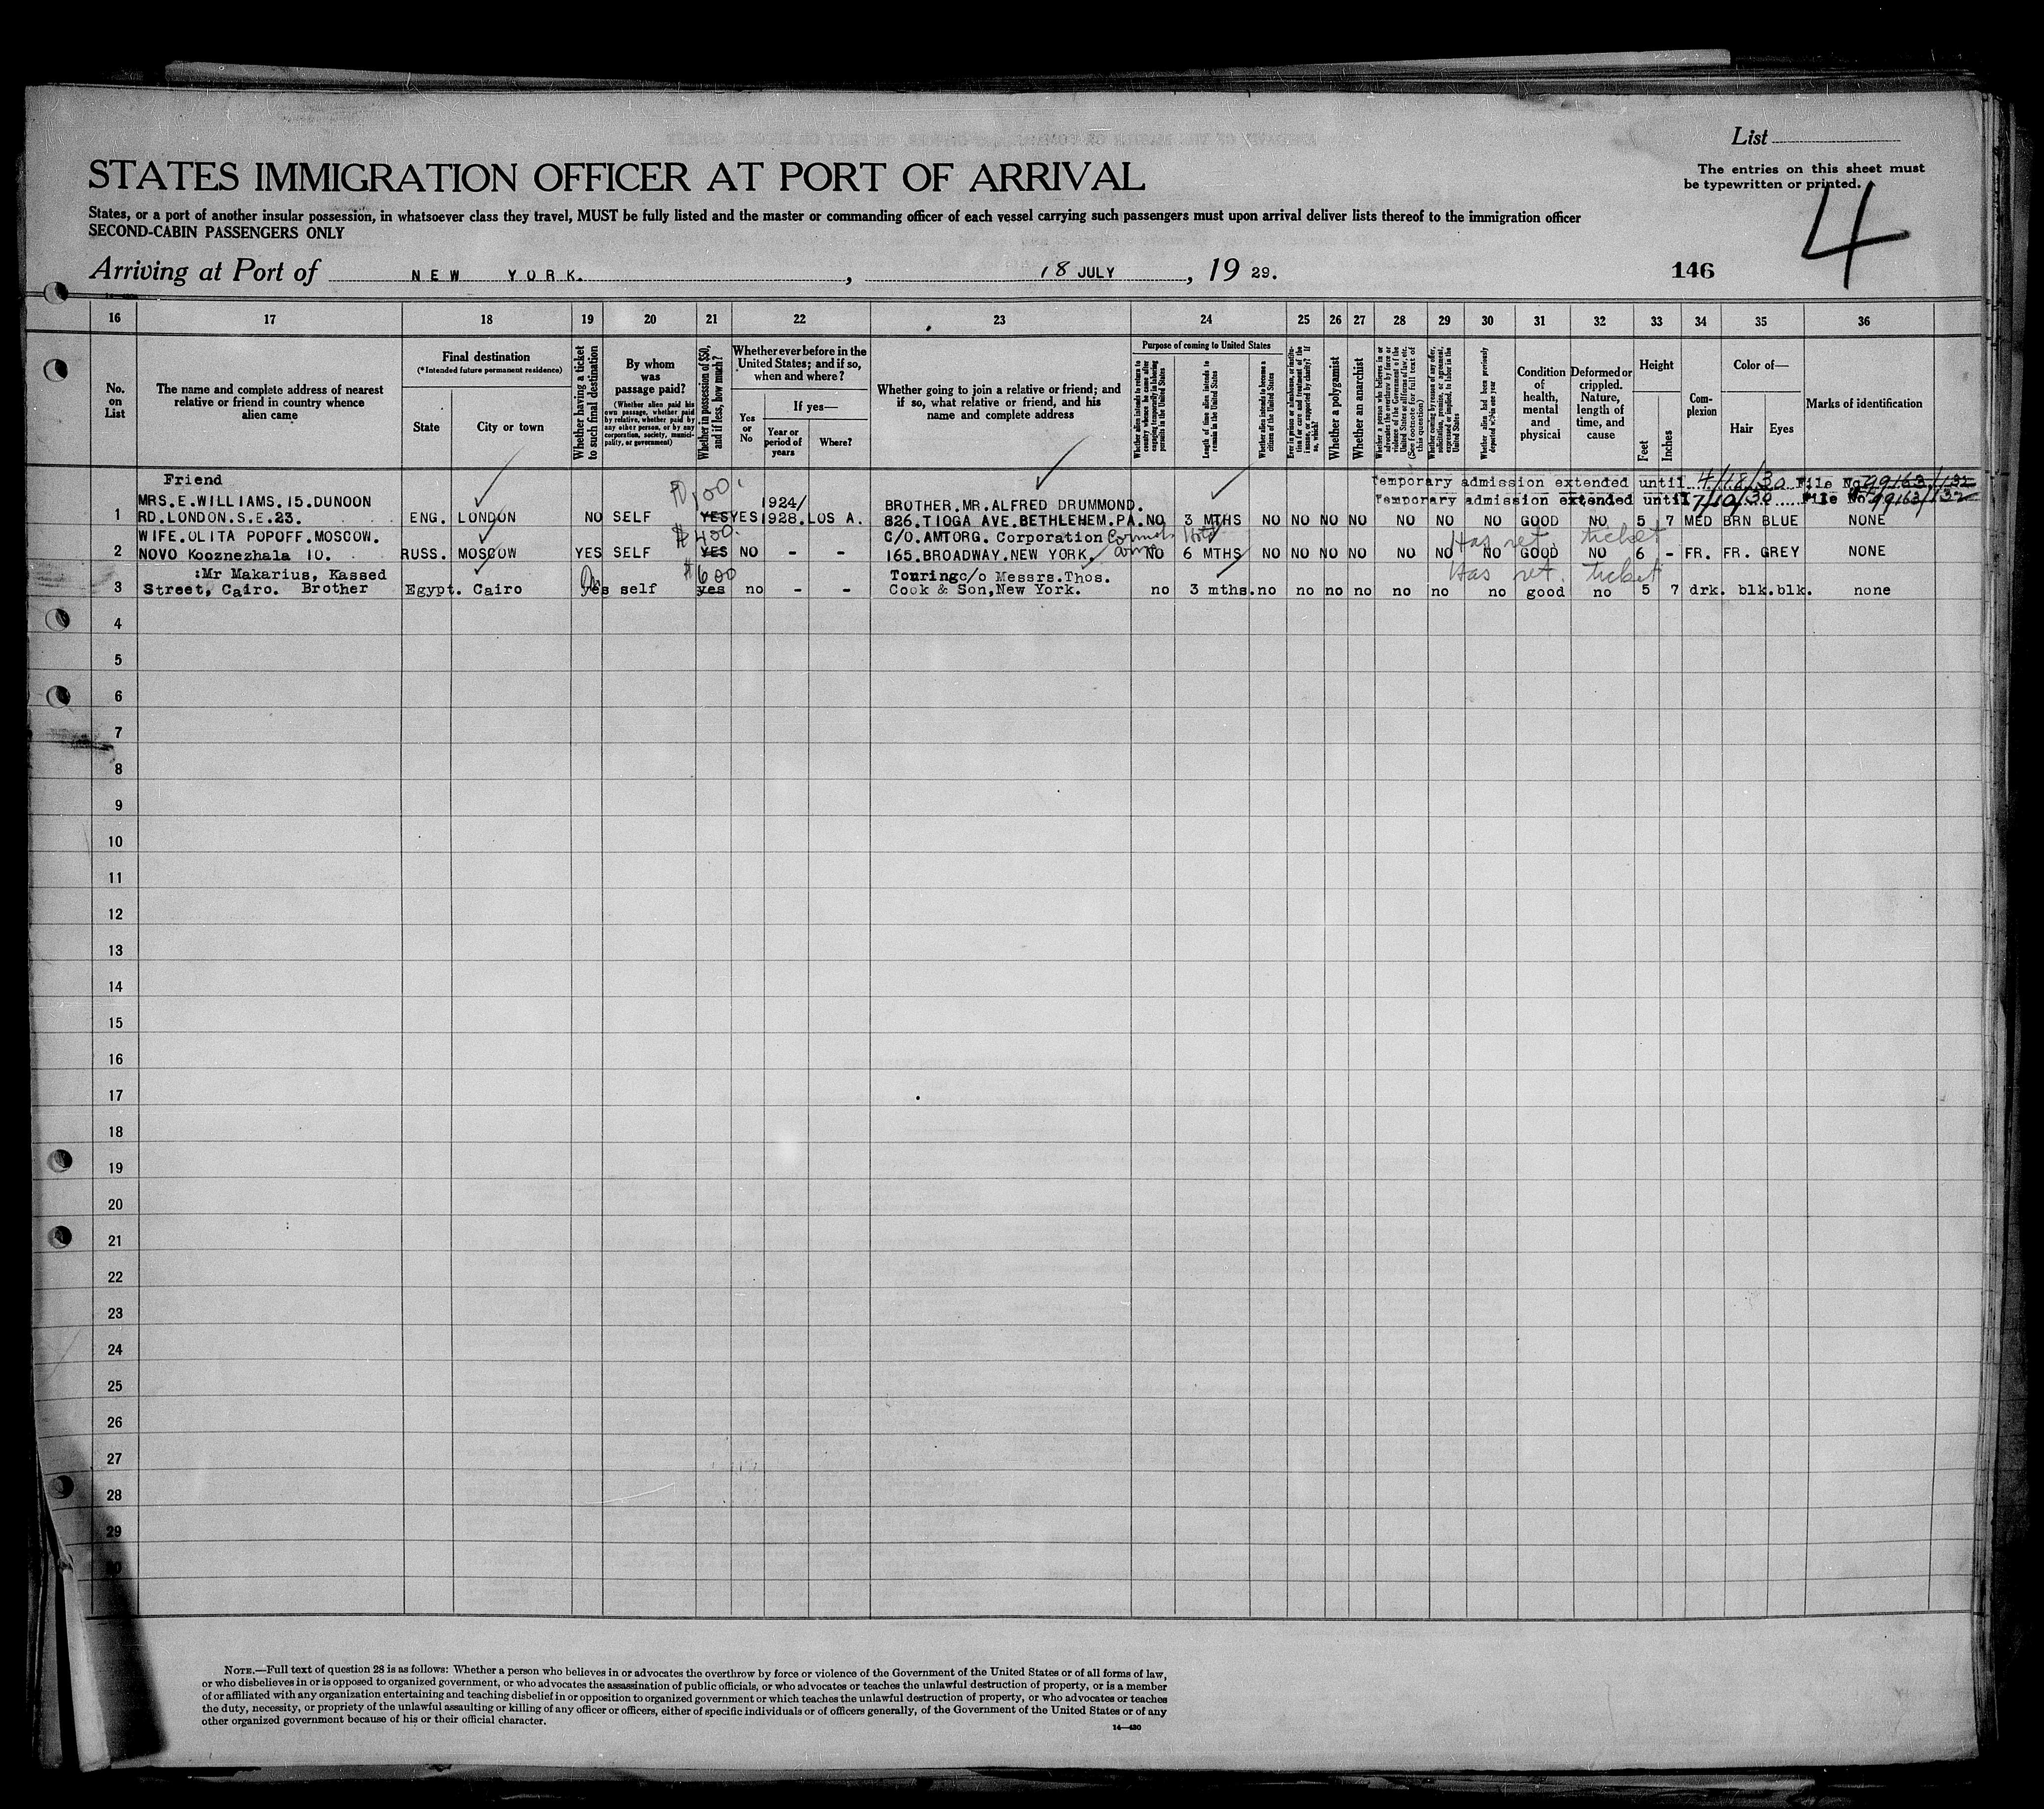 List
The entries on this sheet must
be typewritten or printed.
4
STATES IMMIGRATION OFFICER AT PORT OF ARRIVAL
States, or a port of another insular possession, in whatsoever class they travel, MUST be fully listed and the master or commanding officer of each vessel carrying such passengers must upon arrival deliver lists thereof to the immigration officer
SECOND-CABIN PASSENGERS ONLY
Arriving at Port of NEW YORK. , 18 JULY , 19 29.
146
16 17 18 19 20 21 22 23 24 25 26 27 28 29 30 31 32 33 34 35 36
No. on List
The name and complete address of nearest relative or friend in country whence alien came
Final destination
(*Intended future permanent residence)
State
City or town
Whether having a ticket to such final destination
By whom was passage paid?
(Whether alien paid his own passage, whether paid by relative, whether paid by any other person, or by any corporation, society, municipality, or government)
Whether in possession of $50, and if less, how much?
Whether ever before in the United States; and if so, when and where?
Yes or No
If yes—
Year or period of years
Where?
Whether going to join a relative or friend; and if so, what relative or friend, and his name and complete address
Purpose of coming to United States
Whether alien intends to return to country whence he came after engaging temporarily in laboring pursuits in the United States
Length of time alien intends to remain in the United States
Whether alien intends to become a citizen of the United States
Ever in prison or almshouse, or institution for care and treatment of the insane, or supported by charity? If so, which?
Whether a polygamist
Whether an anarchist
Whether a person who believes in or advocates the overthrow by force or violence of the Government of the United States or all forms of law, etc. (See footnote for full text of this question)
Whether coming by reason of any offer, solicitation, promise, or agreement, expressed or implied, to labor in the United States
Whether alien had been previously deported within one year
Condition of health, mental and physical
Deformed or crippled. Nature, length of time, and cause
Height
Feet
Inches
Complexion
Color of—
Hair
Eyes
Marks of identification
Friend
Temporary admission extended until 4/18/30 File No. 99163/132
MRS.E.WILLIAMS.15.DUNOON $100. 1924/ BROTHER.MR.ALFRED DRUMMOND. Temporary admission extended until 7/10/30 File No. 99163/132
1 RD.LONDON.S.E.23. ENG. LONDON NO SELF YES YES 1928. LOS A. 826.TIOGA AVE.BETHLEHEM.PA. NO 3 MTHS NO NO NO NO NO NO NO GOOD NO 5 7 MED BRN BLUE NONE
WIFE.OLITA POPOFF.MOSCOW. $400. C/O.AMTORG. Corporation Has ret. ticket
2 NOVO Kooznezhala 10. RUSS. MOSCOW YES SELF YES NO - - 165.BROADWAY.NEW YORK. NO 6 MTHS NO NO NO NO NO NO NO GOOD NO 6 - FR. FR. GREY NONE
:Mr Makarius, Kassed $600 Touring c/o Messrs.Thos. Has ret. ticket
3 Street, Cairo. Brother Egypt. Cairo yes self yes no - - Cook & Son,New York. no 3 mths. no no no no no no no good no 5 7 drk. blk. blk. none
4
5
6
7
8
9
10
11
12
13
14
15
16
17
18
19
20
21
22
23
24
25
26
27
28
29
30
NOTE.—Full text of question 28 is as follows: Whether a person who believes in or advocates the overthrow by force or violence of the Government of the United States or of all forms of law,
or who disbelieves in or is opposed to organized government, or who advocates the assassination of public officials, or who advocates or teaches the unlawful destruction of property, or is a member
of or affiliated with any organization entertaining and teaching disbelief in or opposition to organized government or which teaches the unlawful destruction of property, or who advocates or teaches
the duty, necessity, or propriety of the unlawful assaulting or killing of any officer or officers, either of specific individuals or of officers generally, of the Government of the United States or of any
other organized government because of his or their official character.
14—430